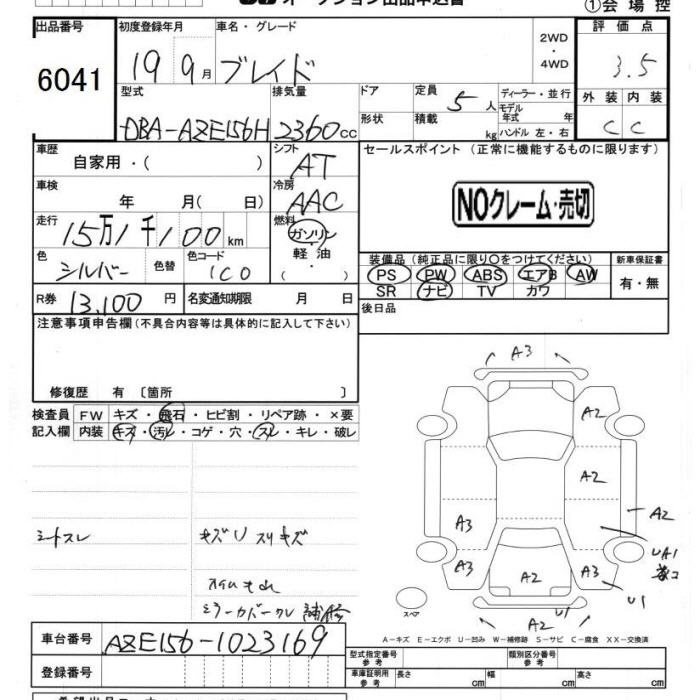 オークション出品申込書
①会場控
出品番号
6041
初度登録年月
19 9月
車名・グレード
ブレイド
2WD
・
4WD
評価点
3.5
型式
DBA-AZE156H
排気量
2360cc
ドア
形状
定員
5人
積載
kg
ディーラー・並行
モデル
年式 年
ハンドル 左・右
外装 内装
C C
車歴
自家用・( )
シフト
AT
セールスポイント (正常に機能するものに限ります)
車検
年 月( 日)
冷房
AAC
NOクレーム・売切
走行
15万1千100km
燃料
ガソリン・
軽油・
( )
色
シルバー
色替
色コード
1C0
装備品 (純正品に限り○をつけてください)
PS PW ABS エアB AW
SR ナビ TV カワ
新車保証書
有・無
R券
13,100円
名変通知期限 月 日
後日品
注意事項申告欄 (不具合内容等は具体的に記入して下さい)
修復歴 有 〔箇所 〕
検査員
記入欄
FW キズ・飛石・ヒビ割・リペア跡・×要
内装 キズ・汚レ・コゲ・穴・スレ・キレ・破レ
シートスレ
キズU スリキズ
オイルもれ
ミラーカバークレ 補修
A3
A2
A2
A3
A2
UA1
A3
A2
A3
U1
U1
A2
スペア
A-キズ E-エクボ U-凹み W-補修跡 S-サビ C-腐食 XX-交換済
車台番号
AZE156-1023169
登録番号
型式指定番号
参考
類別区分番号
参考
車庫証明用
参考
長さ cm
幅 cm
高さ cm